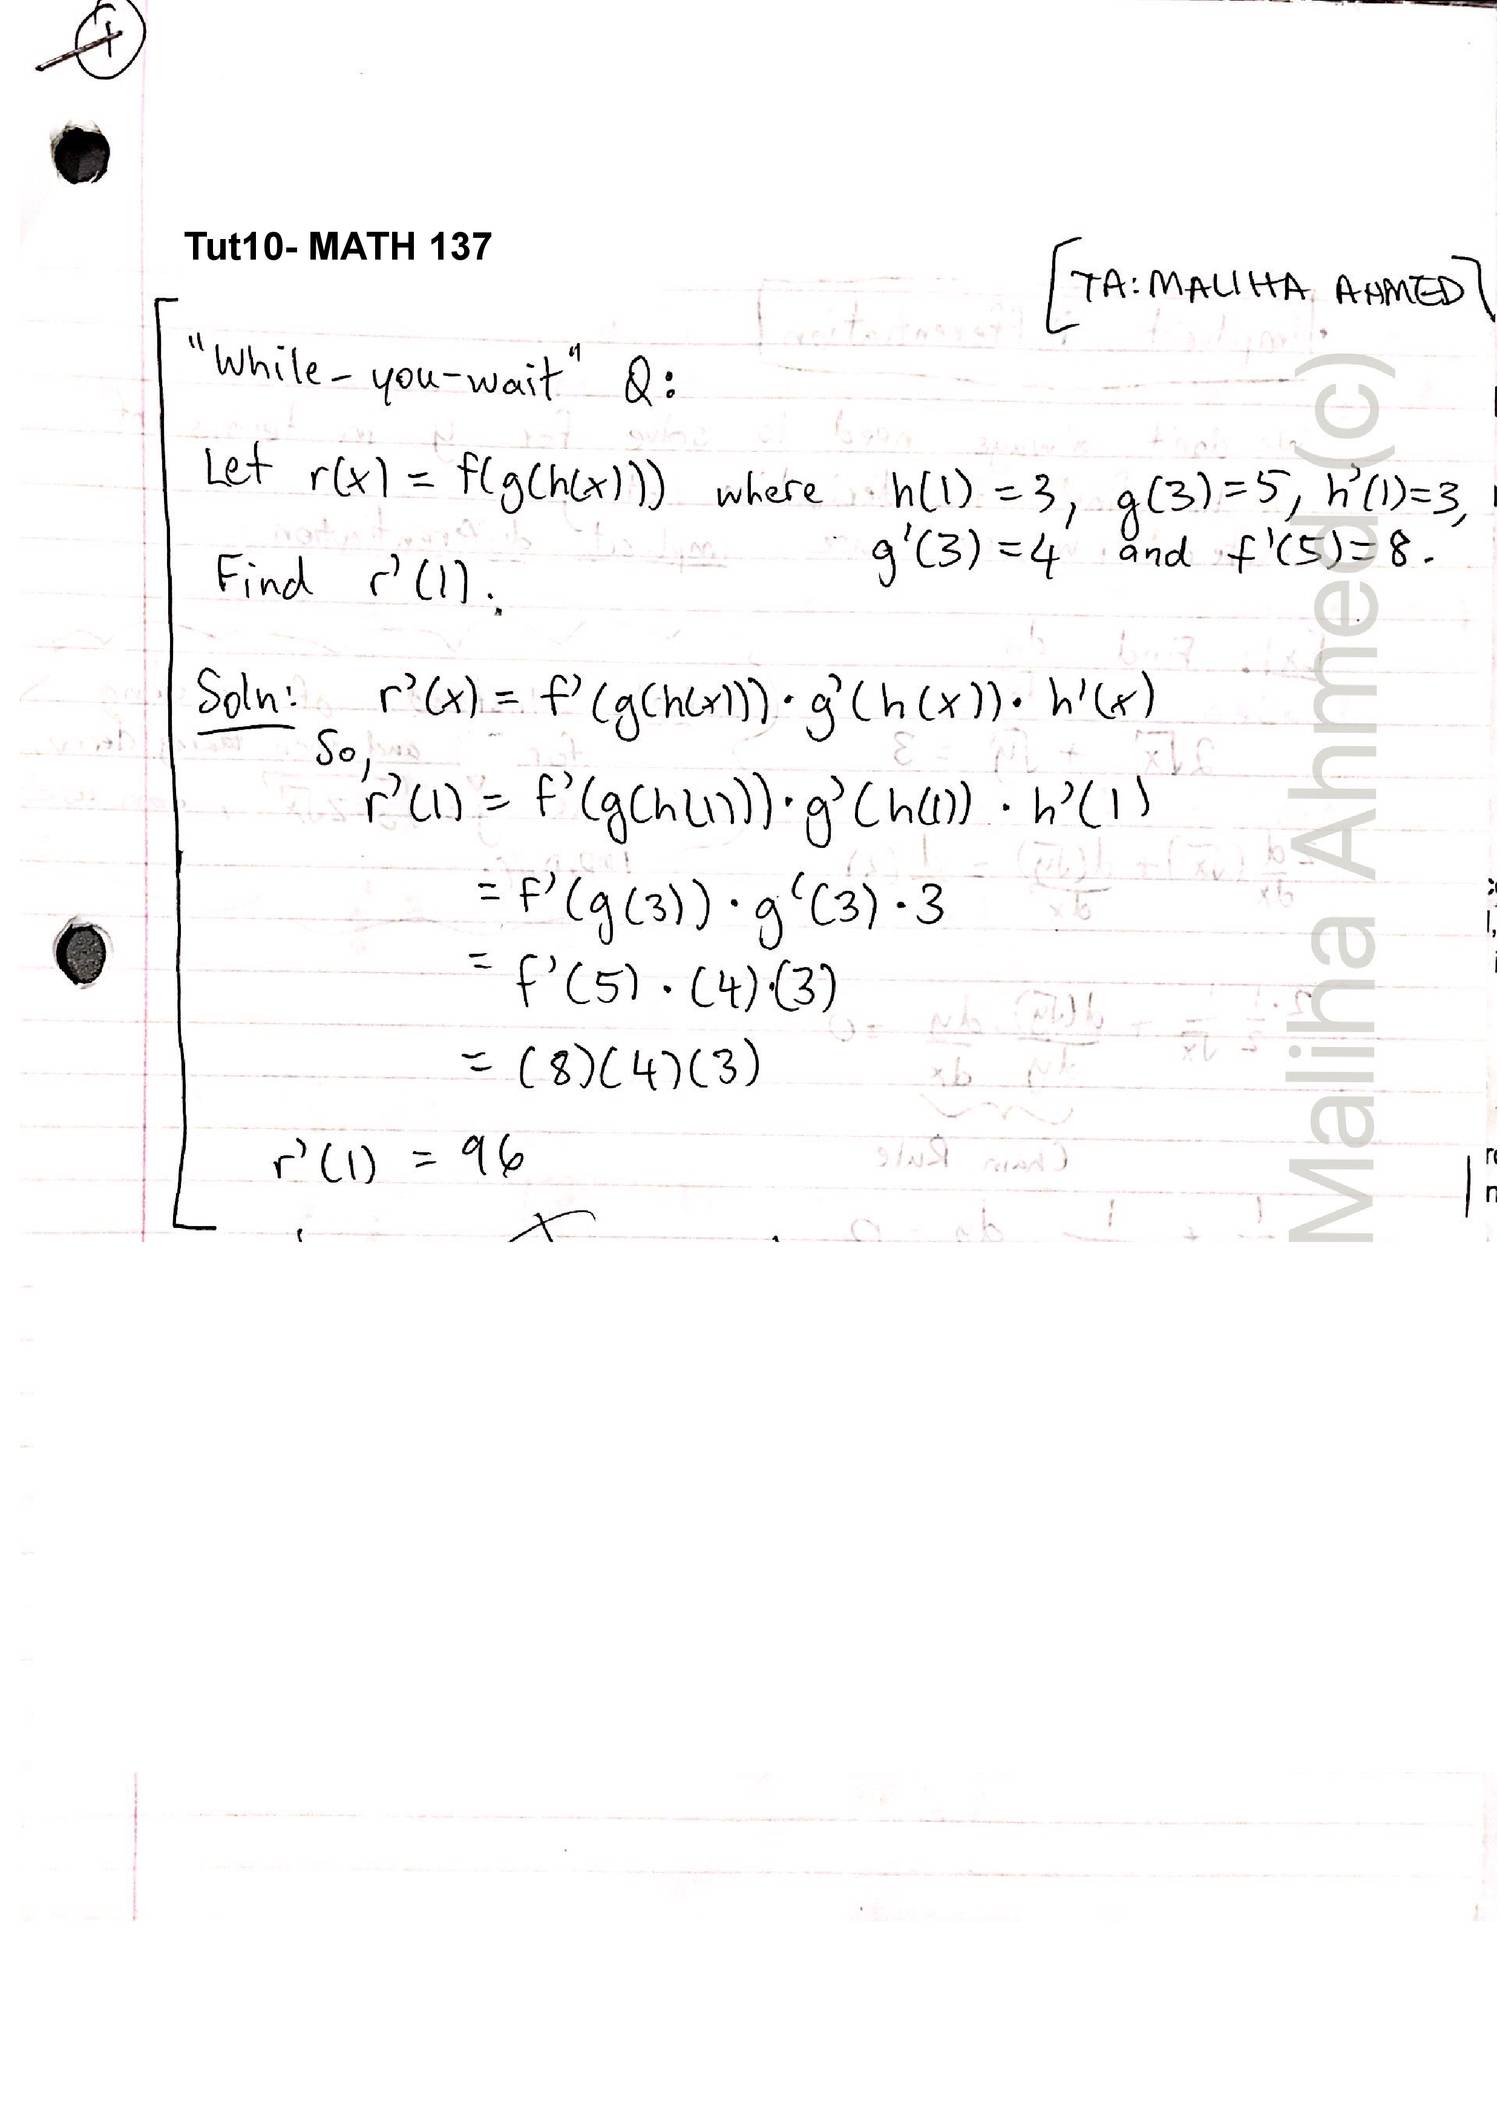 Tut10- MATH 137
[TA: MALIHA AHMED]
"While-you-wait" Q:
Let r(x) = f(g(h(x))) where h(1) = 3, g(3) = 5, h'(1) = 3,
g'(3) = 4 and f'(5) = 8.
Find r'(1).
Soln: r'(x) = f'(g(h(x))) · g'(h(x)) · h'(x)
So,
r'(1) = f'(g(h(1))) · g'(h(1)) · h'(1)
= f'(g(3)) · g'(3) · 3
= f'(5) · (4)·(3)
= (8)(4)(3)
r'(1) = 96
Maliha Ahmed (c)